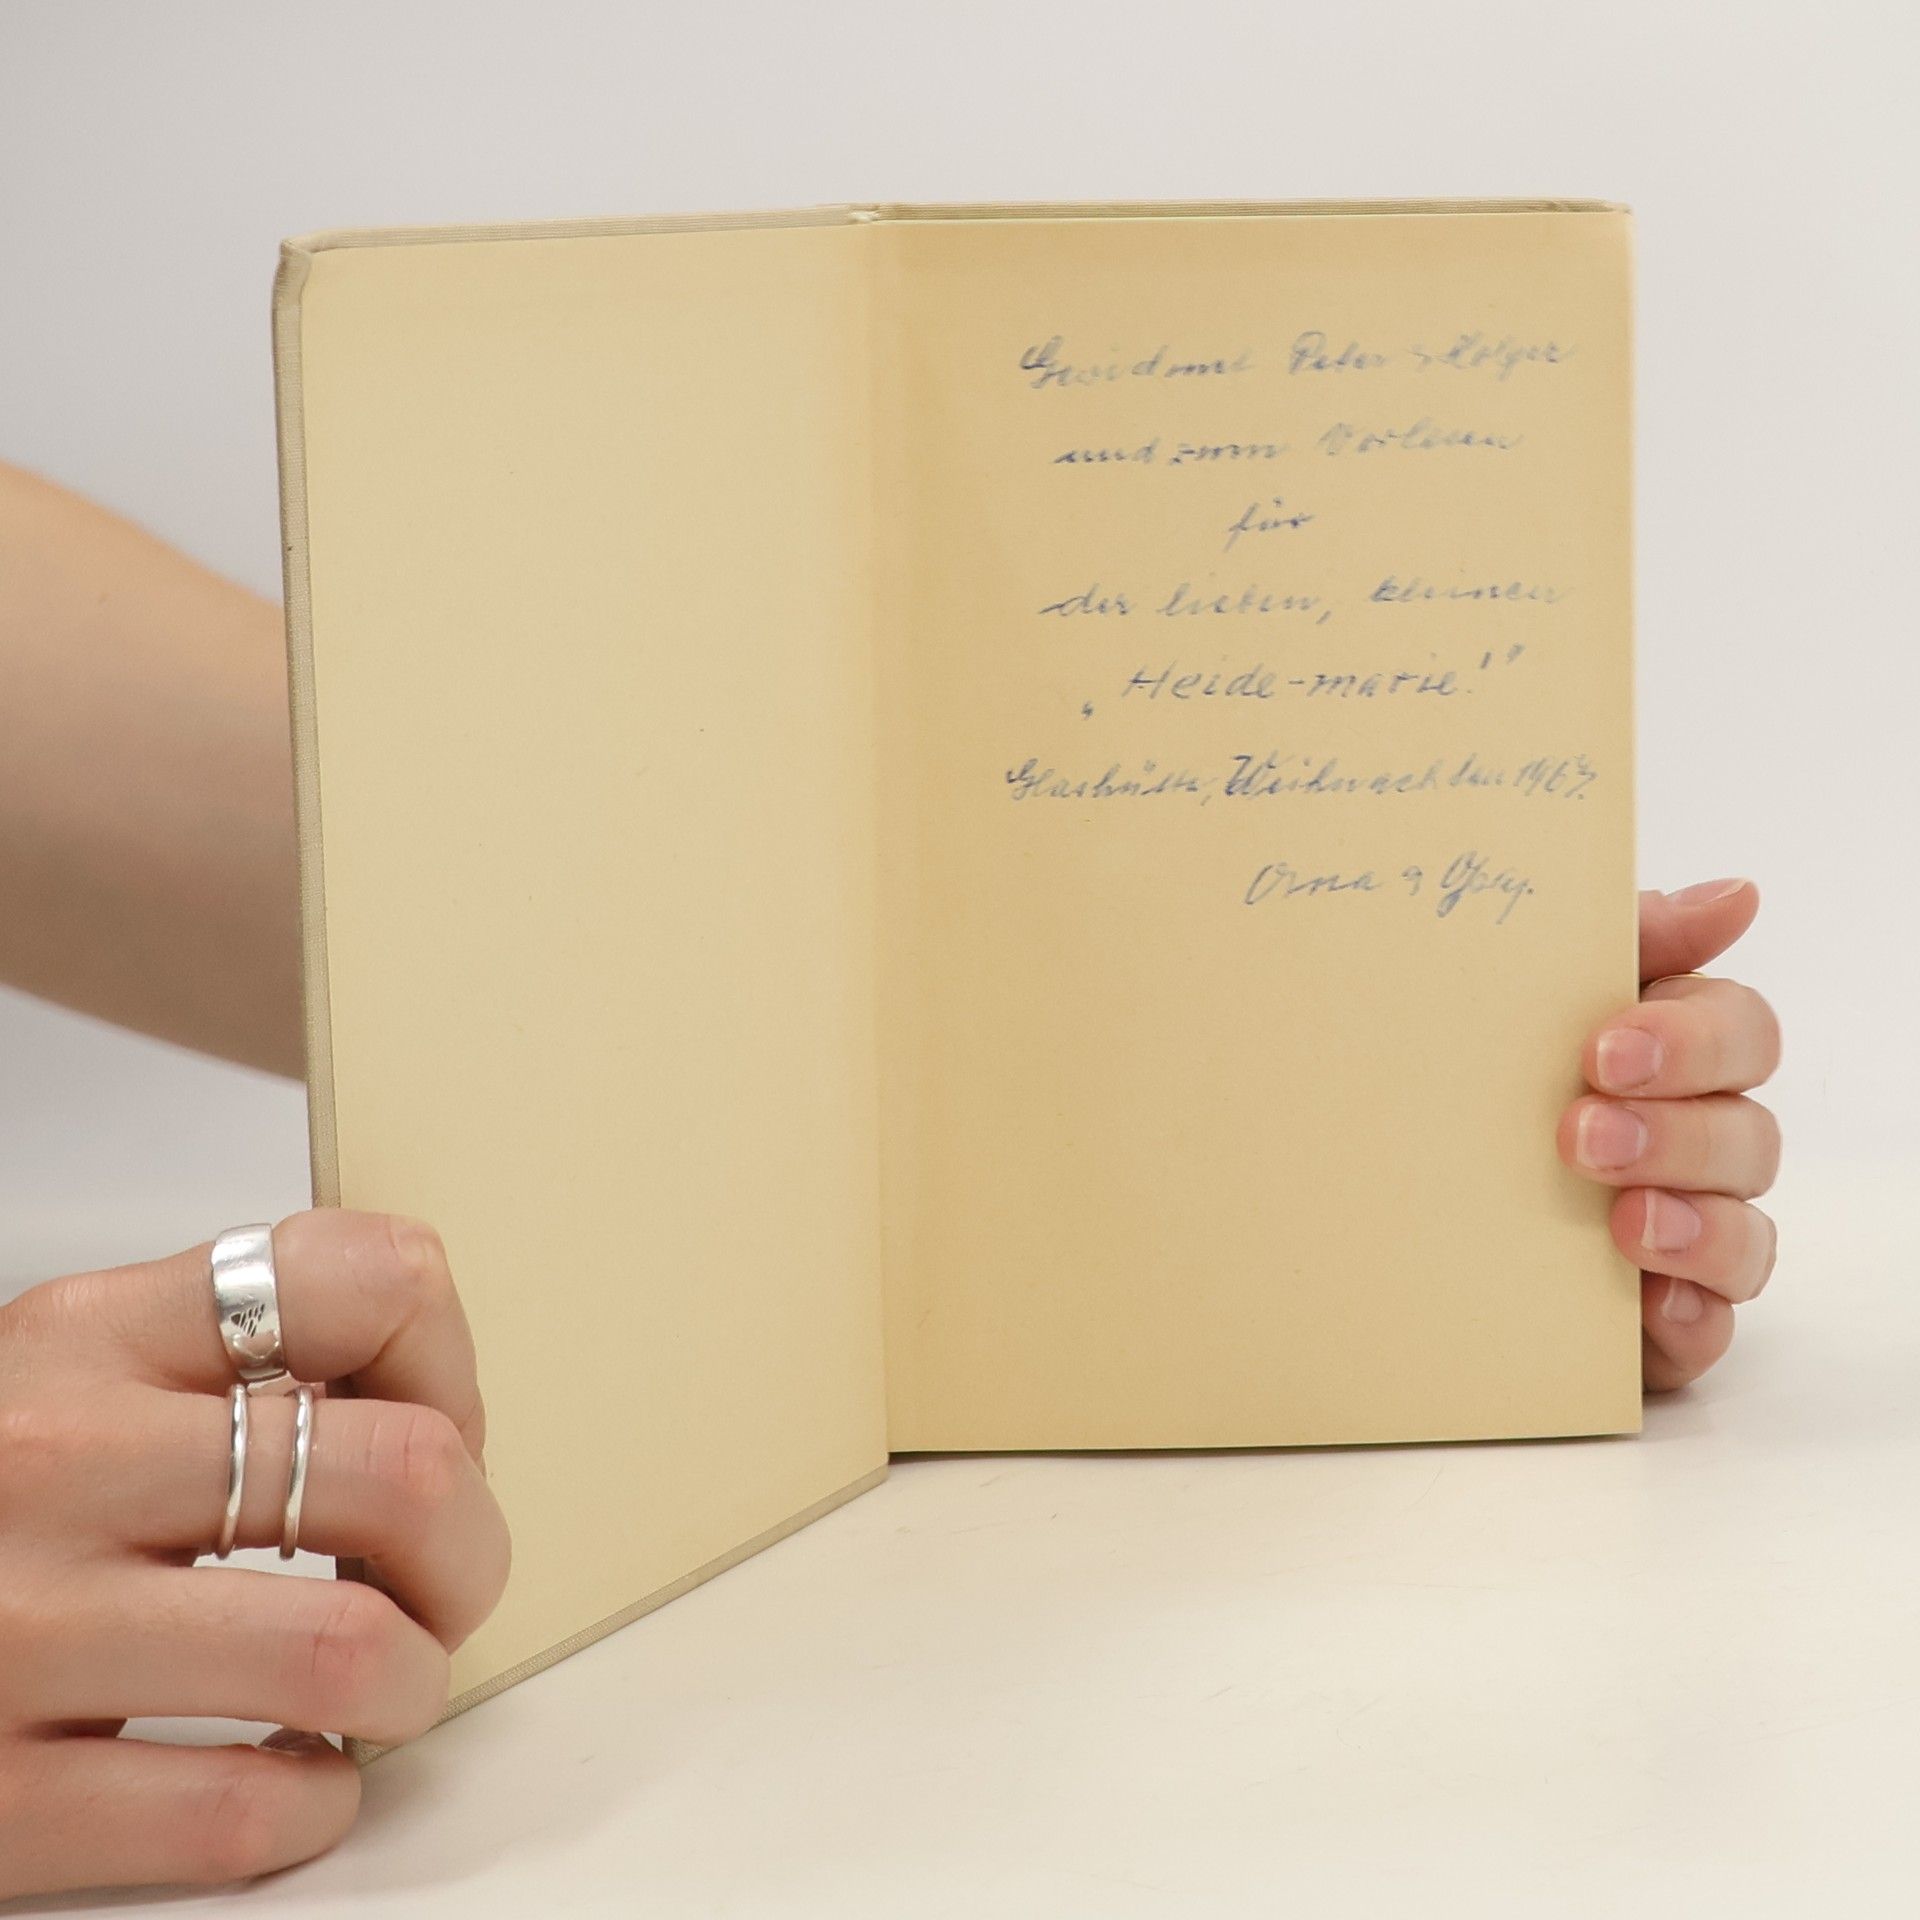 Gewidmet Peter & Holger
und zum Vorlesen
für
der lieben, kleinen
„Heide-marie!"
Glashütte, Weihnachten
Oma & Opa.